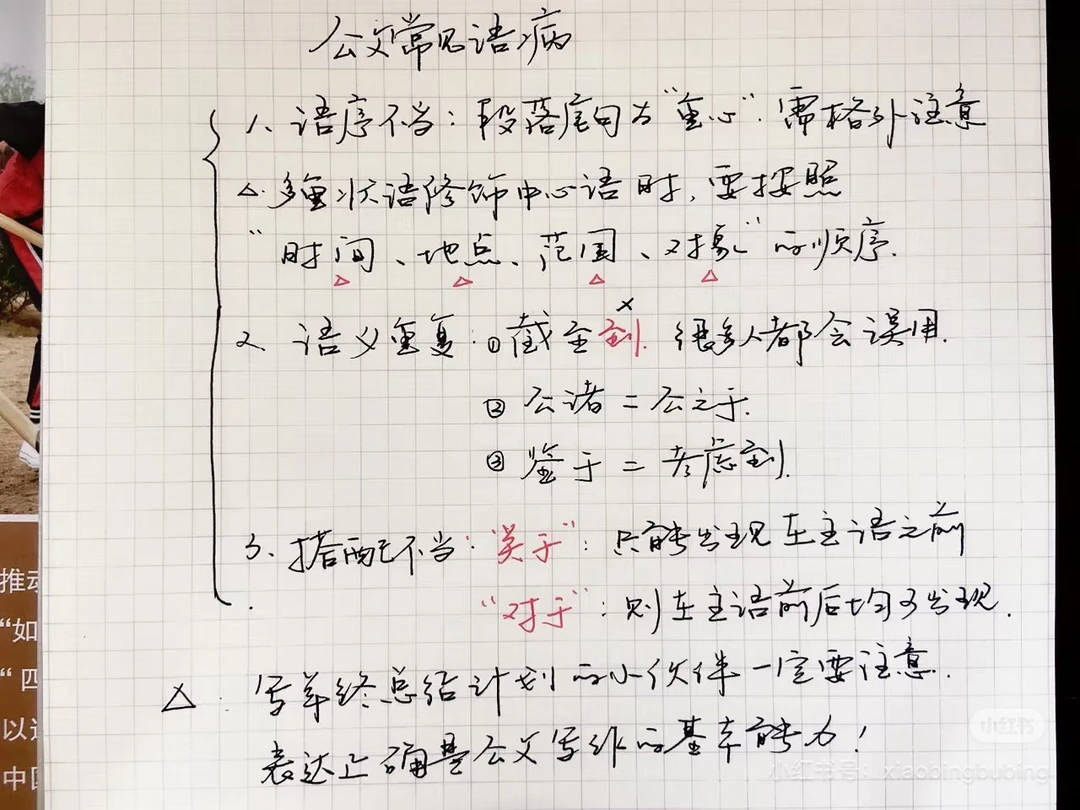 公文常见语病
1、语序不当：段落尾句为“重心”.需格外注意
△.多重状语修饰中心语时，要按照
“时间、地点、范围、对象”的顺序.
2、语义重复：①截至到.很多人都会误用.
②公诸＝公之于.
③鉴于＝考虑到.
3、搭配不当：“关于”：只能出现在主语之前
“对于”：则在主语前后均可出现.
△.写年终总结计划的小伙伴一定要注意.
表达正确是公文写作的基本能力！
推动
“如
“四
以
中国
小红书
小红书号：xiaobingbubing